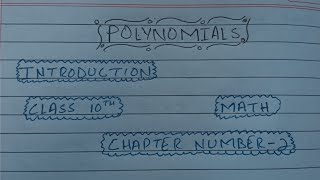 POLYNOMIALS
INTRODUCTION
CLASS 10TH MATH
CHAPTER NUMBER-2